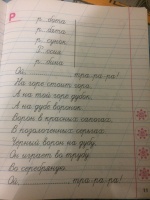 Р
р бота
р бота
р сунок
Р ссия
р бина
Ой, тра-ра-ра!
На горе стоит гора,
А на той горе дубок,
А на дубе воронок.
Ворон в красных сапогах,
В позолоченных серьгах.
Чёрный ворон на дубу,
Он играет во трубу
Во серебряную.
Ой, тра-ра-ра!